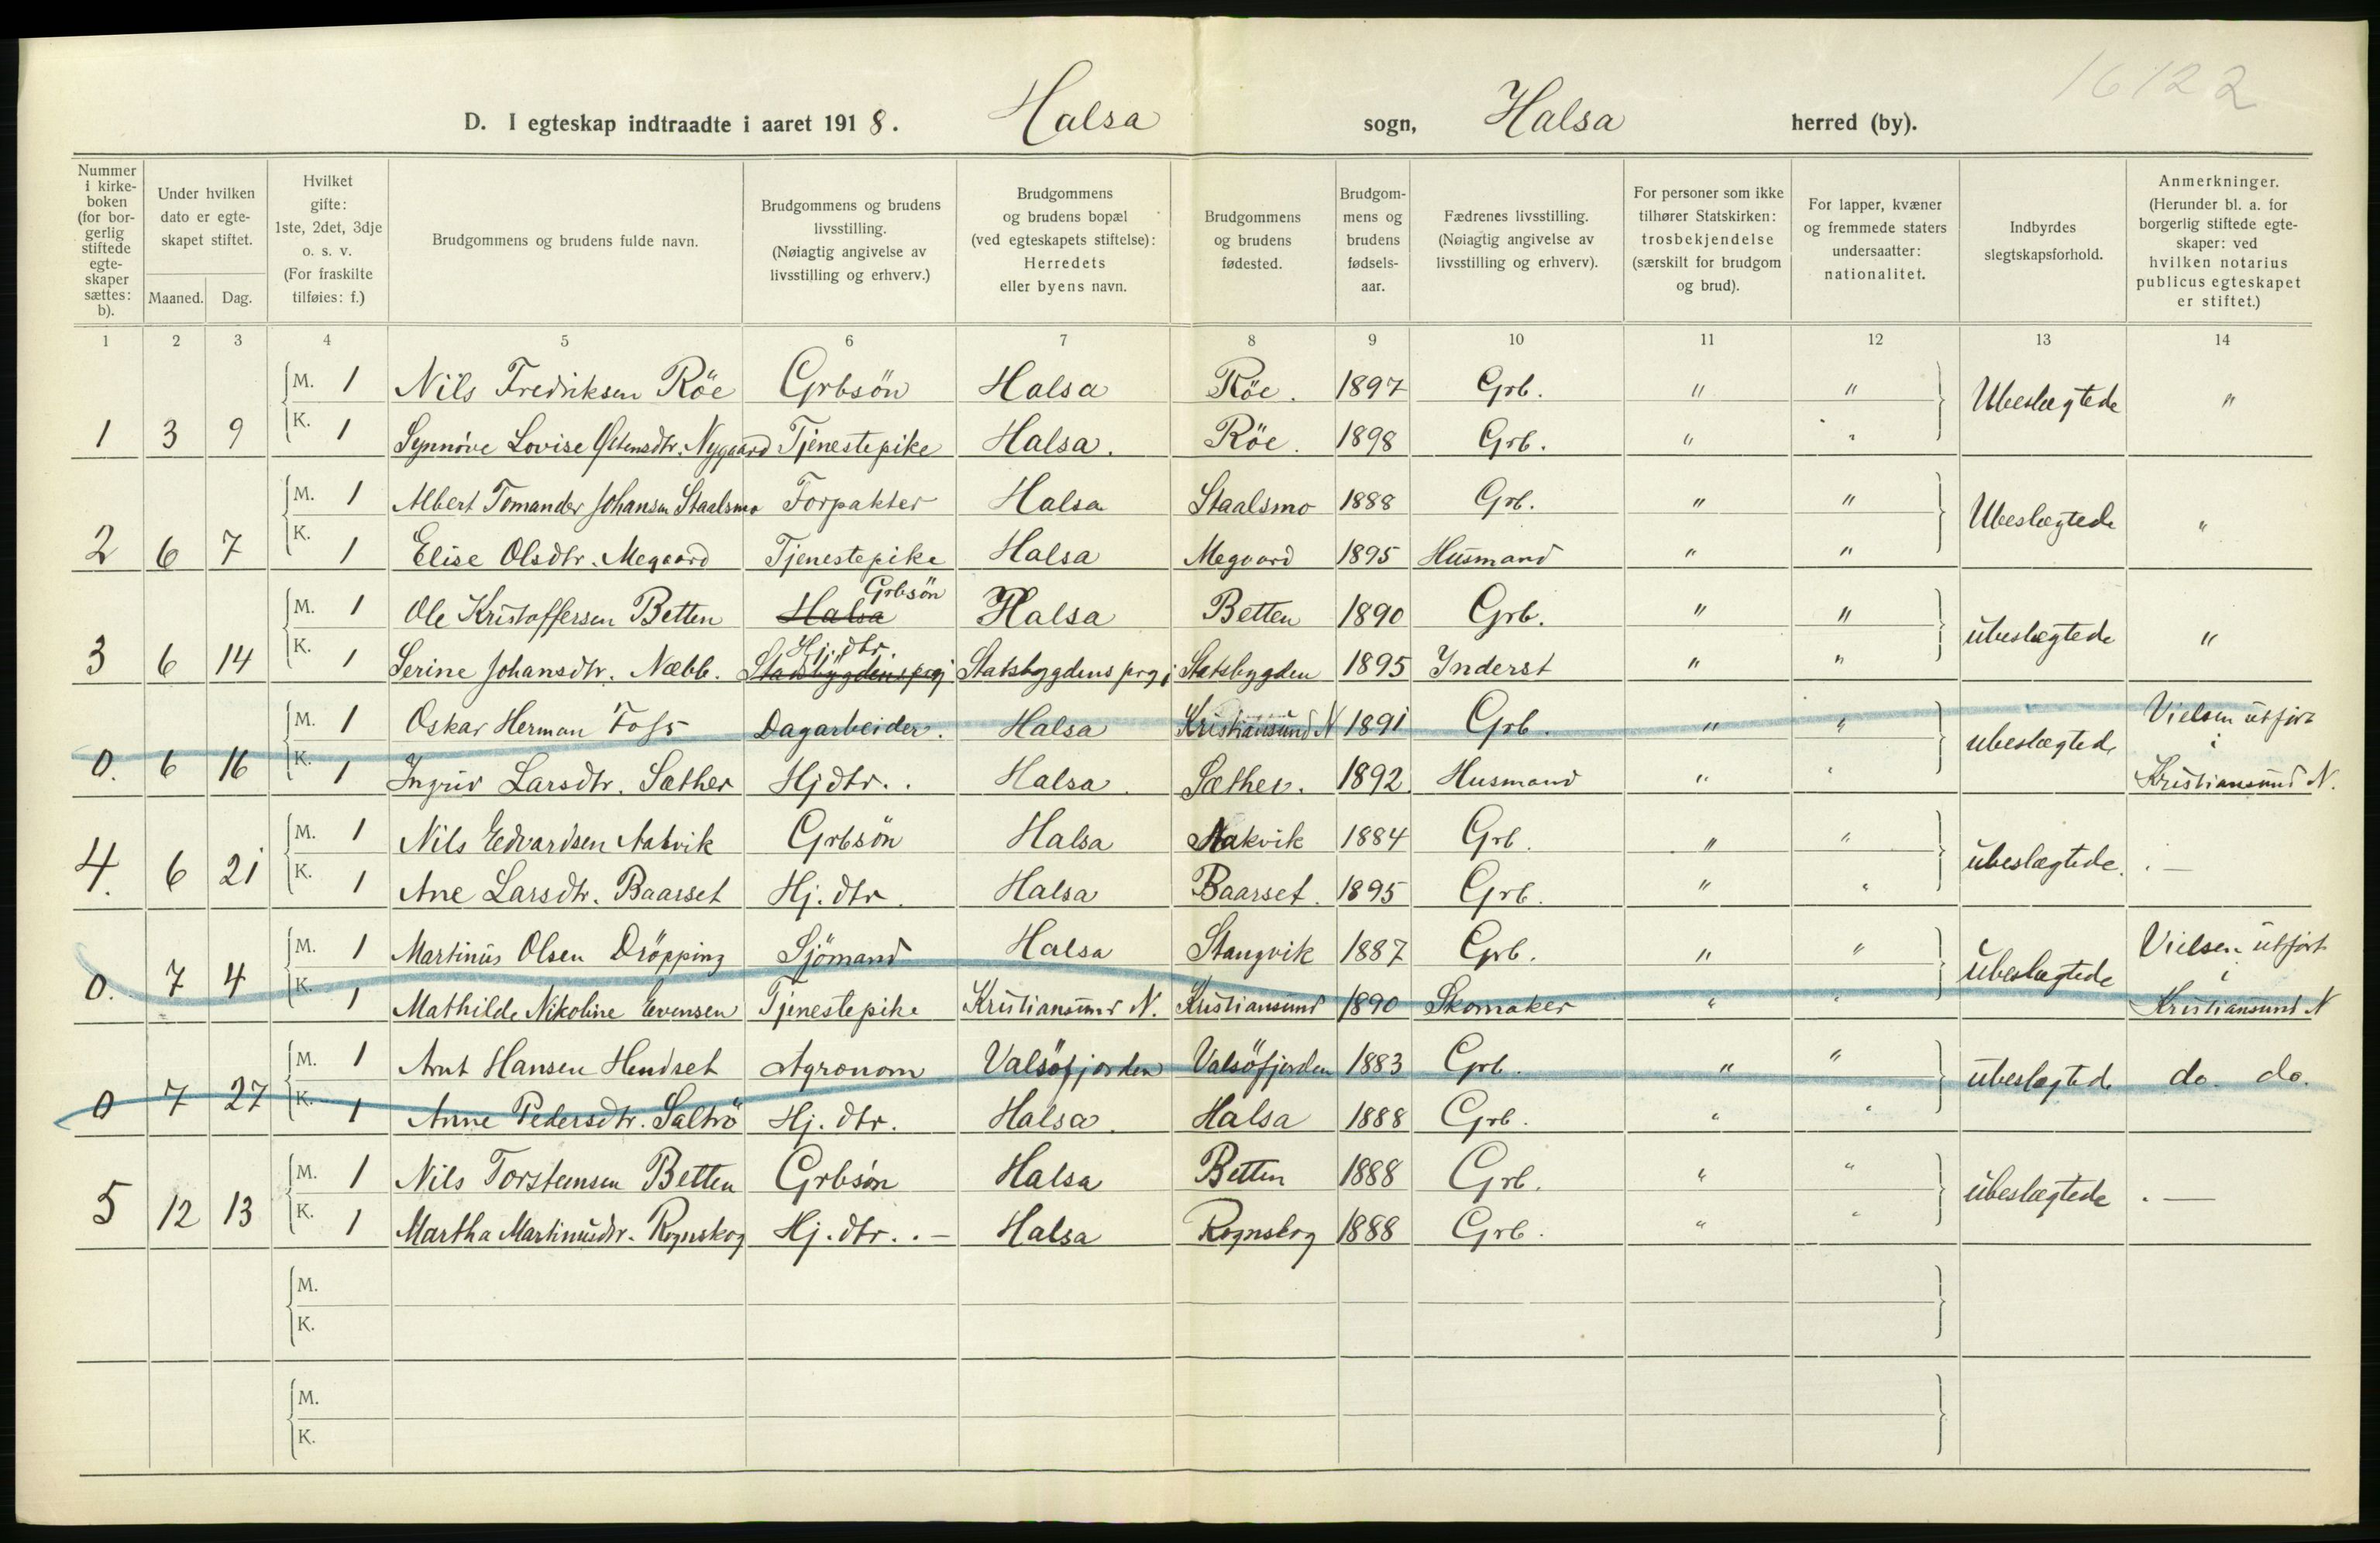 16122
D. I egteskap indtraadte i aaret 1918. Halsa sogn, Halsa herred (by).
Nummer i kirke-boken (for bor-gerlig stiftede egte-skaper sættes: b).
Under hvilken dato er egte-skapet stiftet.
Maaned. Dag.
Hvilket gifte: 1ste, 2det, 3dje o. s. v. (For fraskilte tilføies: f.)
Brudgommens og brudens fulde navn.
Brudgommens og brudens livsstilling. (Nøiagtig angivelse av livsstilling og erhverv.)
Brudgommens og brudens bopæl (ved egteskapets stiftelse): Herredets eller byens navn.
Brudgommens og brudens fødested.
Brudgom-mens og brudens fødsels-aar.
Fædrenes livsstilling. (Nøiagtig angivelse av livsstilling og erhverv).
For personer som ikke tilhører Statskirken: trosbekjendelse (særskilt for brudgom og brud).
For lapper, kvæner og fremmede staters undersaatter: nationalitet.
Indbyrdes slegtskapsforhold.
Anmerkninger. (Herunder bl. a. for borgerlig stiftede egte-skaper: ved hvilken notarius publicus egteskapet er stiftet.)
1 2 3 4 5 6 7 8 9 10 11 12 13 14
M. 1 Nils Fredriksen Röe Grbsön Halsa Röe. 1897 Grb. " " Ubeslægtede "
1 3 9 K. 1 Synnöve Lovise Östensdtr. Nygaard Tjenestepike Halsa. Röe. 1898 Grb. " "
M. 1 Albert Tomander Johansen Staalsmo Forpakter Halsa Staalsmo 1888 Grb. " " Ubeslægtede "
2 6 7 K. 1 Elise Olsdtr. Megaard Tjenestepike Halsa Megaard 1895 Husmand " "
M. 1 Ole Kristoffersen Betten Halsa Grbsön Halsa Betten 1890 Grb. " " ubeslægtede "
3 6 14 K. 1 Serine Johansdtr. Næbb. Statsbygdens prgj Hj. dtr. Statsbygdens prgj Statsbygden 1895 Inderst " "
M. 1 Oskar Herman Foss Dagarbeider. Halsa Kristiansund N 1891 Grb. " " ubeslægtede Vielsen utfört i
0. 6 16 K. 1 Ingrid Larsdtr. Sæther Hjdtr. . Halsa. Sæther. 1892. Husmand " " Kristiansund N.
M. 1 Nils Edvardsen Aakvik Grbsön Halsa Aakvik 1884 Grb. " " ubeslægtede. . —
4. 6 21 K. 1 Ane Larsdtr. Baarset Hj. dtr. Halsa Baarset. 1895 Grb. " "
M. 1 Martinus Olsen Dröpping Sjömand Halsa Stangvik 1887 Grb. " " ubeslægtede Vielsen utfört i
0. 7 4 K. 1 Mathilde Nikoline Evensen Tjenestepike Kristiansund N. Kristiansund 1890 Skomaker " " Kristiansund N
M. 1 Arnt Hansen Hendset Agronom Valsöfjorden Valsöfjorden 1883 Grb. " " ubeslægtede do. do.
0 7 27 K. 1 Anne Pedersdtr. Saltrö Hj. dtr. Halsa. Halsa 1888 Grb. " "
M. 1 Nils Torsteinsen Betten Grbsön Halsa Betten 1888 Grb. " " ubeslægtede . —
5 12 13 K. 1 Martha Martinusdtr. Rognskog Hj. dtr. . — Halsa Rognskog 1888 Grb. " "
M.
K.
M.
K.